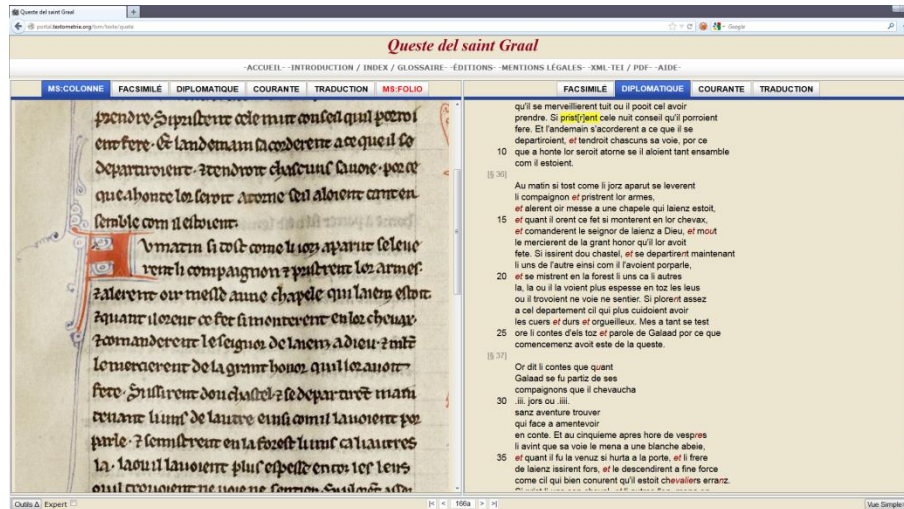 Queste del saint Graal
+
portal.textometrie.org/txm/txde/quete
Google
Queste del saint Graal
-ACCUEIL- -INTRODUCTION / INDEX / GLOSSAIRE- -ÉDITIONS- -MENTIONS LÉGALES- -XML-TEI / PDF- -AIDE-
MS:COLONNE FACSIMILÉ DIPLOMATIQUE COURANTE TRADUCTION MS:FOLIO
prendre. Si pristrent cele nuit conseil quil porroi
ent fere. Et landemain sacorderent a ce que il se
departiroient. ⁊ tendroit chascuns sa uoie. por ce
que a honte lor seroit atorne se il aloient tant en
semble com il estoient.
Au matin si tost come li iorz aparut se leue
rent li compaignon ⁊ pristrent lor armes.
⁊ alerent oir messe a une chapele qui laienz estoit.
⁊ quant il orent ce fet si monterent en lor cheuax.
⁊ comanderent le seignor de laienz a dieu. ⁊ mlt
le mercierent de la grant honor quil lor auoit
fete. Si issirent dou chastel. ⁊ se departirent main
tenant li uns de lautre einsi com il lauoient por
parle. ⁊ se mistrent en la forest li uns ca li autres
la. la ou il la uoient plus espesse en toz les leus
ou il trouoient ne uoie ne sentier. Si plorent assez
FACSIMILÉ DIPLOMATIQUE COURANTE TRADUCTION
qu'il se merveillierent tuit ou il pooit cel avoir
prendre. Si prist[r]ent cele nuit conseil qu'il porroient
fere. Et l'andemain s'acorderent a ce que il se
departiroient, et tendroit chascuns sa voie, por ce
10 que a honte lor seroit atorne se il aloient tant ensamble
com il estoient.
[§ 36]
Au matin si tost come li jorz aparut se leverent
li compaignon et pristrent lor armes,
et alerent oir messe a une chapele qui laienz estoit,
15 et quant il orent ce fet si monterent en lor chevax,
et comanderent le seignor de laienz a Dieu, et mout
le mercierent de la grant honor qu'il lor avoit
fete. Si issirent dou chastel, et se departirent maintenant
li uns de l'autre einsi com il l'avoient porparle,
20 et se mistrent en la forest li uns ca li autres
la, la ou il la voient plus espesse en toz les leus
ou il trovoient ne voie ne sentier. Si plorent assez
a cel departement cil qui plus cuidoient avoir
les cuers et durs et orgueilleux. Mes a tant se test
25 ore li contes d'els toz et parole de Galaad por ce que
comencemenz avoit este de la queste.
[§ 37]
Or dit li contes que quant
Galaad se fu partiz de ses
compaignons que il chevaucha
30 .iii. jors ou .iiii.
sanz aventure trouver
qui face a amentevoir
en conte. Et au cinquieme apres hore de vespres
li avint que sa voie le mena a une blanche abeie,
35 et quant il fu la venuz si hurta a la porte, et li frere
de laienz issirent fors, et le descendirent a fine force
come cil qui bien conurent qu'il estoit chevaliers erranz.
Outils Δ Expert
|< < 166a > >|
Vue Simple